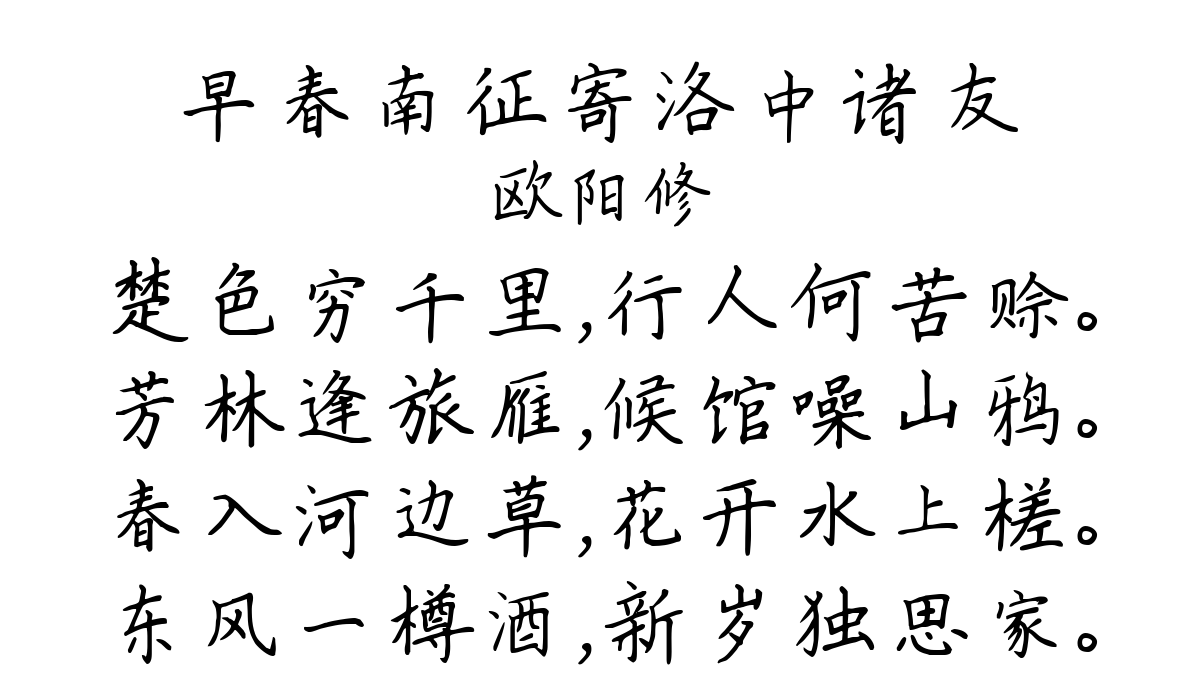 早春南征寄洛中诸友
欧阳修
楚色穷千里,行人何苦赊。
芳林逢旅雁,候馆噪山鸦。
春入河边草,花开水上槎。
东风一樽酒,新岁独思家。